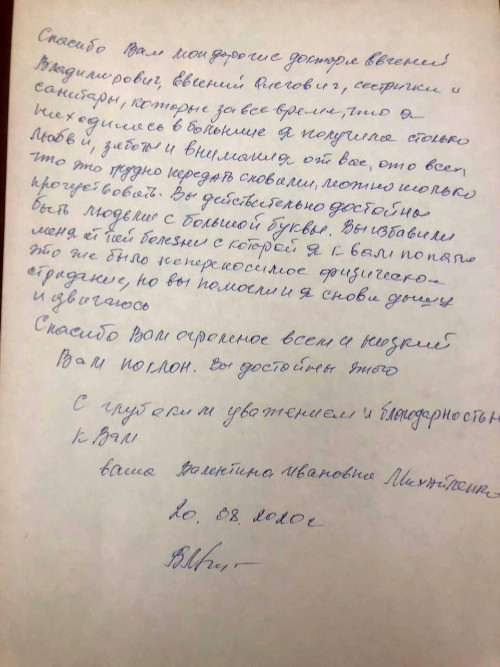 Спасибо Вам мои дорогие доктора Евгений
Владимирович, Евгений Олегович, сестрички и
санитары, которые за все время, что я
находилась в больнице я получила столько
любви, заботы и внимания от вас, ото всех,
что это трудно передать словами, можно только
прочувствовать. Вы действительно достойны
быть людьми с большой буквы. Вы избавили
меня от той болезни с которой я к вам попала
это же было непереносимое физическо-
страдание, но вы помогли и я снова дышу
и двигаюсь
Спасибо Вам огромное всем и низкий
Вам поклон. Вы достойны этого
С глубоким уважением и благодарностью
к Вам
ваша Валентина Ивановна
20. 08. 2020г